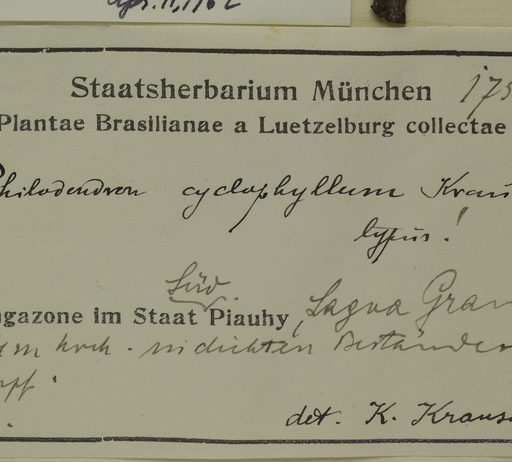 Apr. 11, 1962
Staatsherbarium München 175
Plantae Brasilianae a Luetzelburg collectae
Philodendron cyclophyllum Krau
typus!
Süd
ngazone im Staat Piauhy, Lagoa Gran
m hoch - in dichten Beständen
pf.
det. K. Kraus